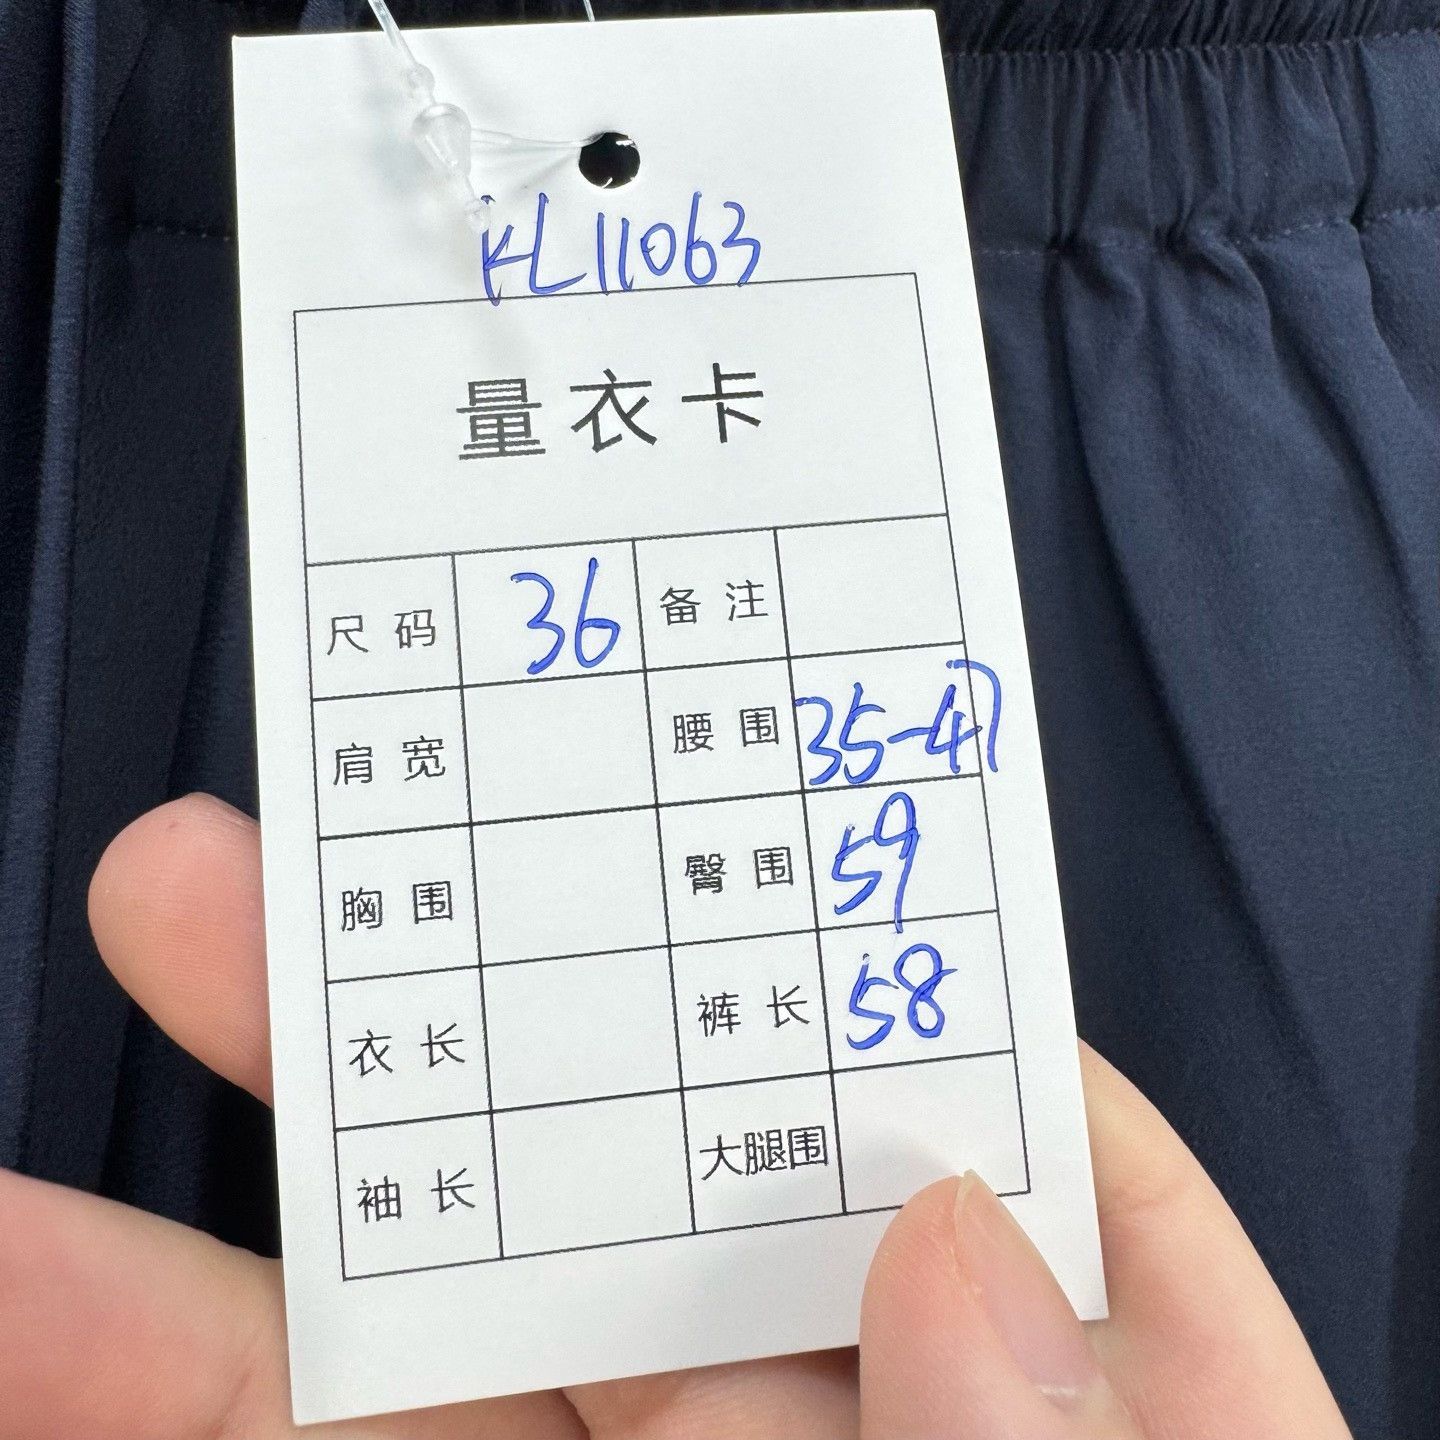 KL11063
量衣卡
尺码 36 备注
肩宽 腰围 35-47
胸围 臀围 59
衣长 裤长 58
袖长 大腿围